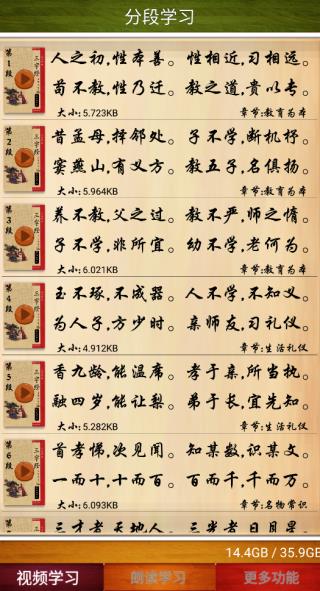 分段学习
第1段
三字经
人之初,性本善。 性相近,习相远。
苟不教,性乃迁。 教之道,贵以专。
大小:5.723KB 章节:教育为本
第2段
三字经
昔孟母,择邻处。 子不学,断机杼。
窦燕山,有义方。 教五子,名俱扬。
大小:5.964KB 章节:教育为本
第3段
三字经
养不教,父之过。 教不严,师之惰。
子不学,非所宜。 幼不学,老何为。
大小:6.021KB 章节:教育为本
第4段
三字经
玉不琢,不成器。 人不学,不知义。
为人子,方少时。 亲师友,习礼仪。
大小:4.912KB 章节:生活礼仪
第5段
三字经
香九龄,能温席。 孝于亲,所当执。
融四岁,能让梨。 弟于长,宜先知。
大小:5.282KB 章节:生活礼仪
第6段
三字经
首孝悌,次见闻。 知某数,识某文。
一而十,十而百。 百而千,千而万。
大小:6.093KB 章节:名物常识
三才者,天地人。 三光者,日月星。
14.4GB / 35.9GB
视频学习 朗读学习 更多功能